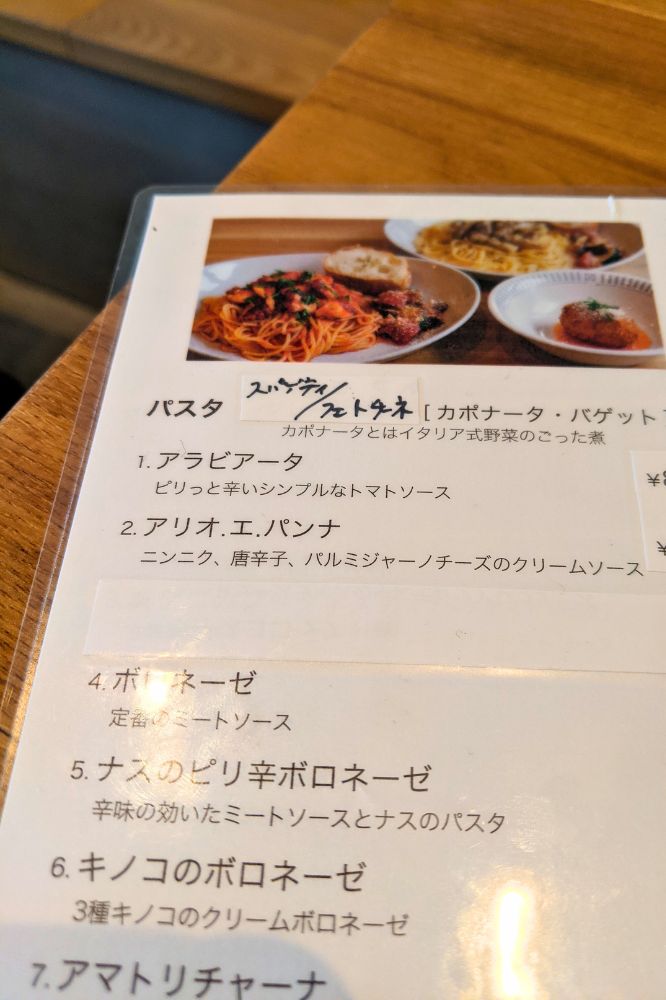 パスタ スパゲティ/フェトチーネ [ カポナータ・バゲット
カポナータとはイタリア式野菜のごった煮
1. アラビアータ
ピリっと辛いシンプルなトマトソース
¥
2. アリオ.エ.パンナ
ニンニク、唐辛子、パルミジャーノチーズのクリームソース
¥
4. ボロネーゼ
定番のミートソース
5. ナスのピリ辛ボロネーゼ
辛味の効いたミートソースとナスのパスタ
6. キノコのボロネーゼ
3種キノコのクリームボロネーゼ
7. アマトリチャーナ